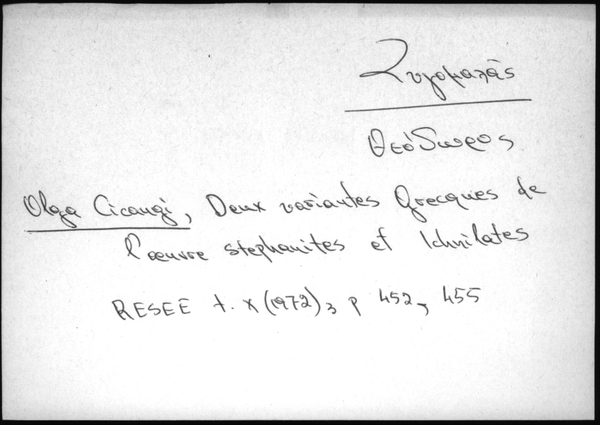 Ζυγομαλάς
Θεόδωρος
Olga Cicanci, Deux variantes Grecques de
l'œuvre stephanites et Ichnilates
RESEE t. X (1972), p 452, 455